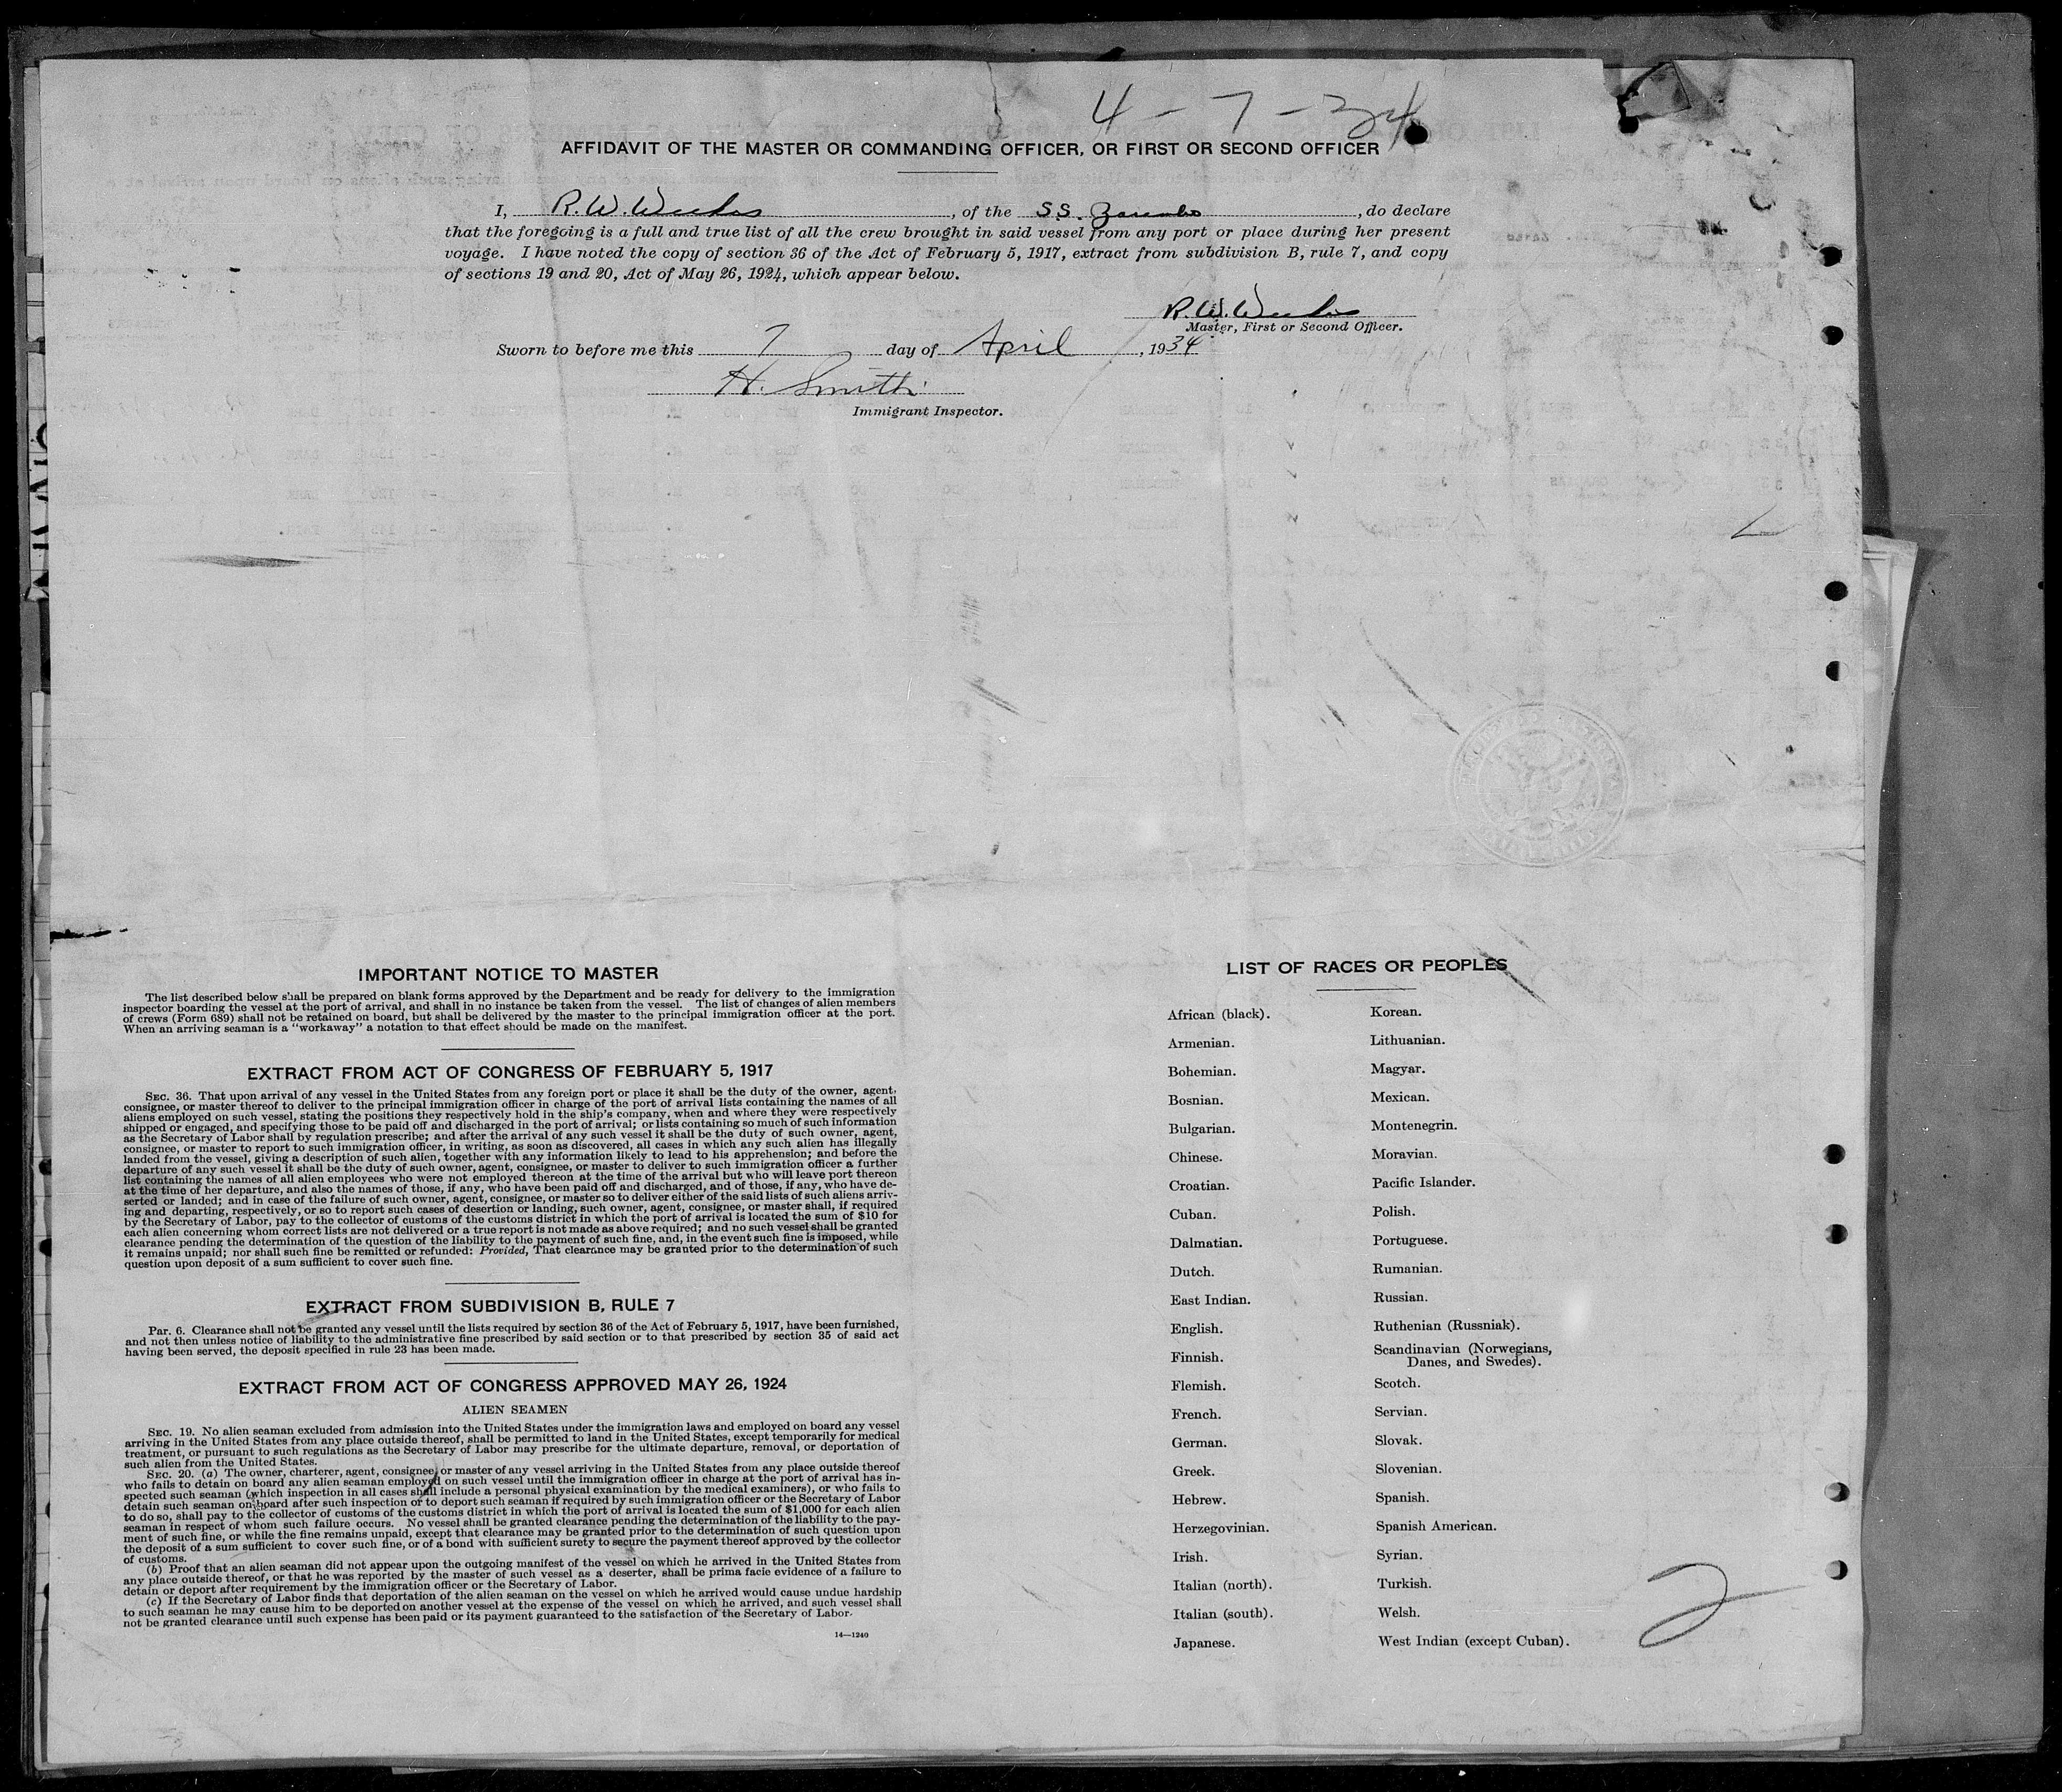 4-7-34
AFFIDAVIT OF THE MASTER OR COMMANDING OFFICER, OR FIRST OR SECOND OFFICER
I, R.W. Weeks, of the S.S. Zarembo, do declare
that the foregoing is a full and true list of all the crew brought in said vessel from any port or place during her present
voyage. I have noted the copy of section 36 of the Act of February 5, 1917, extract from subdivision B, rule 7, and copy
of sections 19 and 20, Act of May 26, 1924, which appear below.
R.W. Weeks
Master, First or Second Officer.
Sworn to before me this 7 day of April, 1934
H. Smith
Immigrant Inspector.
IMPORTANT NOTICE TO MASTER
The list described below shall be prepared on blank forms approved by the Department and be ready for delivery to the immigration
inspector boarding the vessel at the port of arrival, and shall in no instance be taken from the vessel. The list of changes of alien members
of crews (Form 689) shall not be retained on board, but shall be delivered by the master to the principal immigration officer at the port.
When an arriving seaman is a "workaway" a notation to that effect should be made on the manifest.
EXTRACT FROM ACT OF CONGRESS OF FEBRUARY 5, 1917
SEC. 36. That upon arrival of any vessel in the United States from any foreign port or place it shall be the duty of the owner, agent,
consignee, or master thereof to deliver to the principal immigration officer in charge of the port of arrival lists containing the names of all
aliens employed on such vessel, stating the positions they respectively hold in the ship's company, when and where they were respectively
shipped or engaged, and specifying those to be paid off and discharged in the port of arrival; or lists containing so much of such information
as the Secretary of Labor shall by regulation prescribe; and after the arrival of any such vessel it shall be the duty of such owner, agent,
consignee, or master to report to such immigration officer, in writing, as soon as discovered, all cases in which any such alien has illegally
landed from the vessel, giving a description of such alien, together with any information likely to lead to his apprehension; and before the
departure of any such vessel it shall be the duty of such owner, agent, consignee, or master to deliver to such immigration officer a further
list containing the names of all alien employees who were not employed thereon at the time of the arrival but who will leave port thereon
at the time of her departure, and also the names of those, if any, who have been paid off and discharged, and of those, if any, who have de-
serted or landed; and in case of the failure of such owner, agent, consignee, or master so to deliver either of the said lists of such aliens arriv-
ing and departing, respectively, or so to report such cases of desertion or landing, such owner, agent, consignee, or master shall, if required
by the Secretary of Labor, pay to the collector of customs of the customs district in which the port of arrival is located the sum of $10 for
each alien concerning whom correct lists are not delivered or a true report is not made as above required; and no such vessel shall be granted
clearance pending the determination of the question of the liability to the payment of such fine, and, in the event such fine is imposed, while
it remains unpaid; nor shall such fine be remitted or refunded: Provided, That clearance may be granted prior to the determination of such
question upon deposit of a sum sufficient to cover such fine.
EXTRACT FROM SUBDIVISION B, RULE 7
Par. 6. Clearance shall not be granted any vessel until the lists required by section 36 of the Act of February 5, 1917, have been furnished,
and not then unless notice of liability to the administrative fine prescribed by said section or to that prescribed by section 35 of said act
having been served, the deposit specified in rule 23 has been made.
EXTRACT FROM ACT OF CONGRESS APPROVED MAY 26, 1924
ALIEN SEAMEN
SEC. 19. No alien seaman excluded from admission into the United States under the immigration laws and employed on board any vessel
arriving in the United States from any place outside thereof, shall be permitted to land in the United States, except temporarily for medical
treatment, or pursuant to such regulations as the Secretary of Labor may prescribe for the ultimate departure, removal, or deportation of
such alien from the United States.
SEC. 20. (a) The owner, charterer, agent, consignee, or master of any vessel arriving in the United States from any place outside thereof
who fails to detain on board any alien seaman employed on such vessel until the immigration officer in charge at the port of arrival has in-
spected such seaman (which inspection in all cases shall include a personal physical examination by the medical examiners), or who fails to
detain such seaman on board after such inspection or to deport such seaman if required by such immigration officer or the Secretary of Labor
to do so, shall pay to the collector of customs of the customs district in which the port of arrival is located the sum of $1,000 for each alien
seaman in respect of whom such failure occurs. No vessel shall be granted clearance pending the determination of the liability to the pay-
ment of such fine, or while the fine remains unpaid, except that clearance may be granted prior to the determination of such question upon
the deposit of a sum sufficient to cover such fine, or of a bond with sufficient surety to secure the payment thereof approved by the collector
of customs.
(b) Proof that an alien seaman did not appear upon the outgoing manifest of the vessel on which he arrived in the United States from
any place outside thereof, or that he was reported by the master of such vessel as a deserter, shall be prima facie evidence of a failure to
detain or deport after requirement by the immigration officer or the Secretary of Labor.
(c) If the Secretary of Labor finds that deportation of the alien seaman on the vessel on which he arrived would cause undue hardship
to such seaman he may cause him to be deported on another vessel at the expense of the vessel on which he arrived, and such vessel shall
not be granted clearance until such expense has been paid or its payment guaranteed to the satisfaction of the Secretary of Labor.
14—1240
LIST OF RACES OR PEOPLES
African (black).
Armenian.
Bohemian.
Bosnian.
Bulgarian.
Chinese.
Croatian.
Cuban.
Dalmatian.
Dutch.
East Indian.
English.
Finnish.
Flemish.
French.
German.
Greek.
Hebrew.
Herzegovinian.
Irish.
Italian (north).
Italian (south).
Japanese.
Korean.
Lithuanian.
Magyar.
Mexican.
Montenegrin.
Moravian.
Pacific Islander.
Polish.
Portuguese.
Rumanian.
Russian.
Ruthenian (Russniak).
Scandinavian (Norwegians,
Danes, and Swedes).
Scotch.
Servian.
Slovak.
Slovenian.
Spanish.
Spanish American.
Syrian.
Turkish.
Welsh.
West Indian (except Cuban).
2